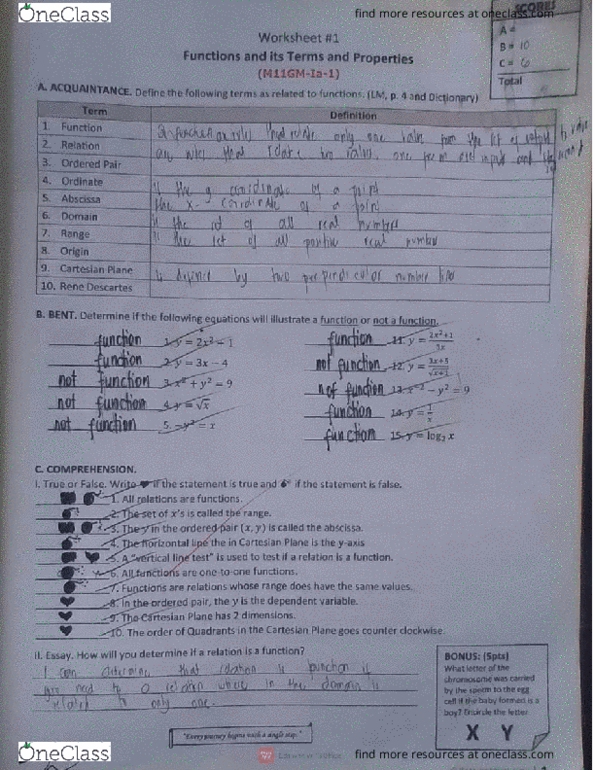 OneClass
find more resources at oneclass.com
SCORES
A =
B = 10
C = 6
Total
Worksheet #1
Functions and its Terms and Properties
(M11GM-Ia-1)
A. ACQUAINTANCE. Define the following terms as related to functions. (LM, p. 4 and Dictionary)
Term Definition
1. Function only one from the set of
2. Relation that
3. Ordered Pair
4. Ordinate is the y coordinate of a point
5. Abscissa the x- coordinate of a point
6. Domain is the set of all real numbers
7. Range is the set of all positive real number
8. Origin
9. Cartesian Plane is defined by two perpendicular number line
10. Rene Descartes
B. BENT. Determine if the following equations will illustrate a function or not a function.
function 1. y = 2x² − 1
function 2. y = 3x − 4
not function 3. x² + y² = 9
not function 4. y = √x
not function 5. −y² = x
function 11. y = 2x²+1/3x
not function 12. y =
not function 13. x² − y² = 9
function 14. y = 1/x
function 15. y = log₂ x
C. COMPREHENSION.
I. True or False. Write ♥ if the statement is true and if the statement is false.
1. All relations are functions.
2. The set of x's is called the range.
3. The y in the ordered pair (x, y) is called the abscissa.
4. The horizontal line the in Cartesian Plane is the y-axis
5. A "vertical line test" is used to test if a relation is a function.
6. All functions are one-to-one functions.
7. Functions are relations whose range does have the same values.
8. In the ordered pair, the y is the dependent variable.
9. The Cartesian Plane has 2 dimensions.
10. The order of Quadrants in the Cartesian Plane goes counter clockwise.
II. Essay. How will you determine if a relation is a function?
I can determine that relation is function if
need to a relation where in the domain is
related to only one.
BONUS: (5pts)
What letter of the
chromosome was carried
by the sperm to the egg
cell if the baby formed is a
boy? Encircle the letter
X Y
"Every journey begins with a single step."
OneClass
find more resources at oneclass.com